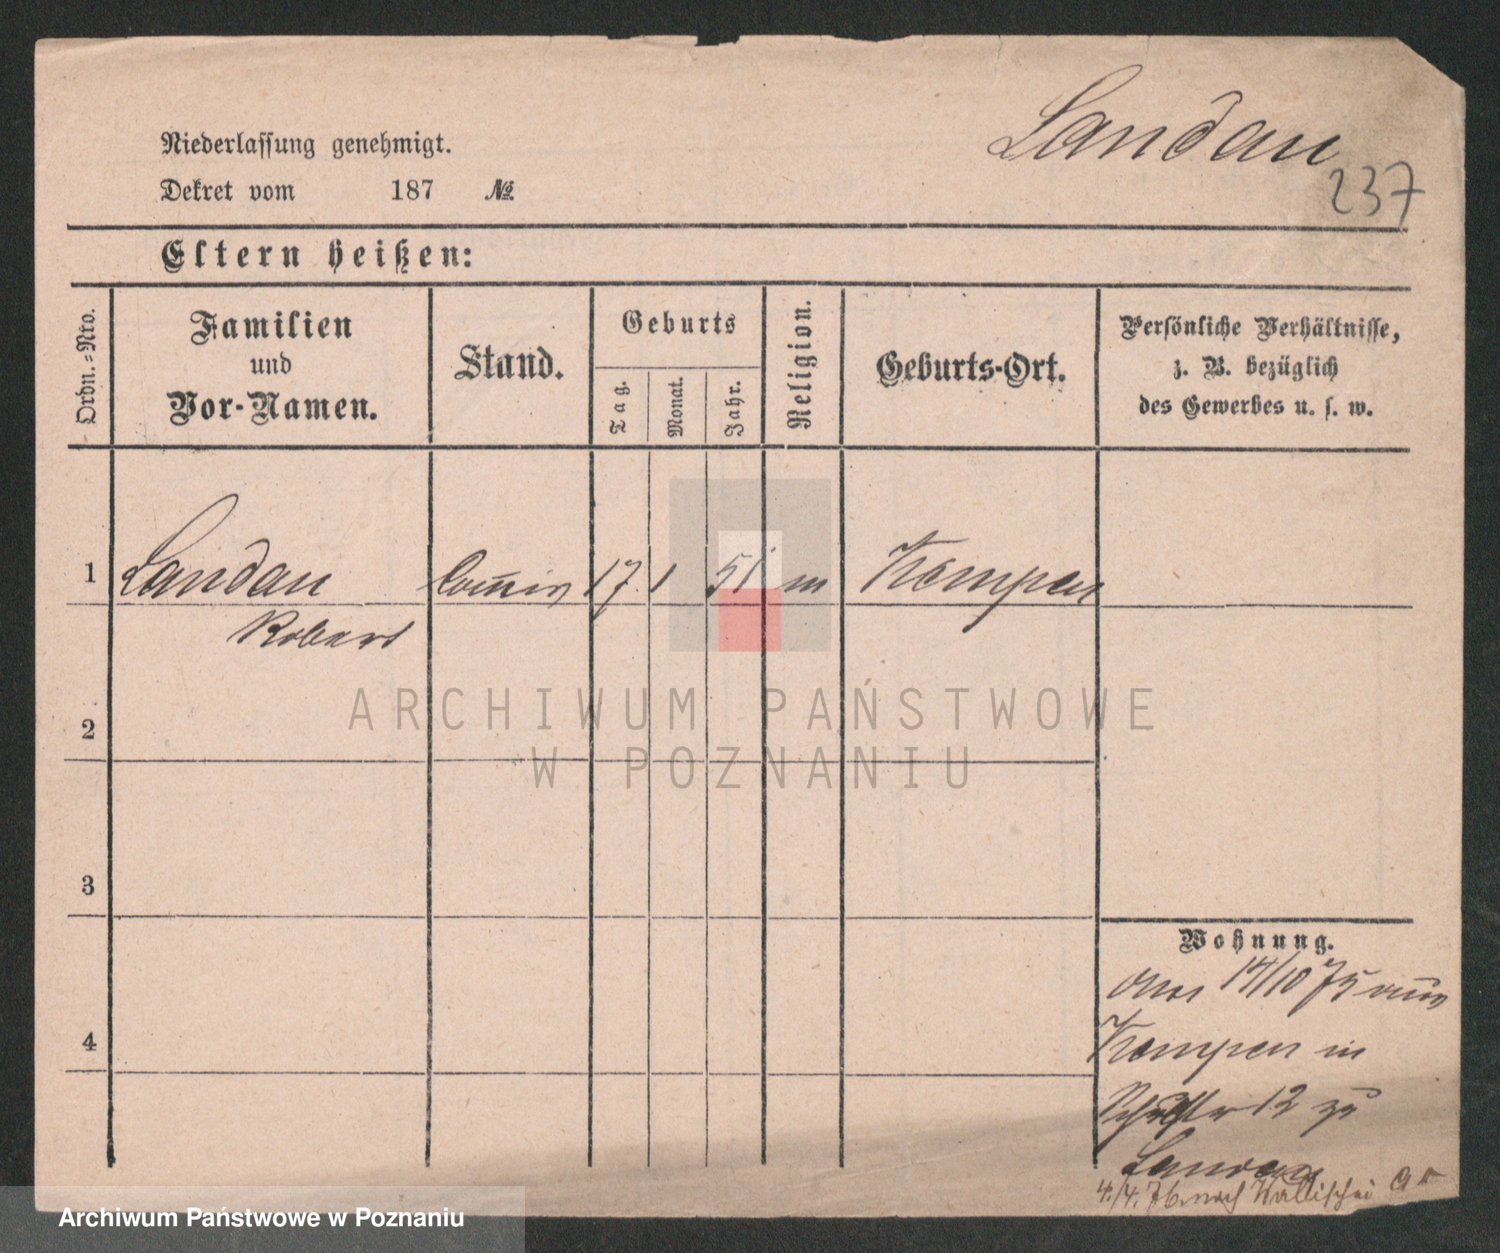 Landau
237
Niederlassung genehmigt.
Dekret vom 187 №
Eltern heißen:
Ordn.=Nro.
Familien
und
Vor-Namen.
Stand.
Geburts
Tag.
Monat.
Jahr.
Religion.
Geburts-Ort.
Persönliche Verhältnisse,
z. B. bezüglich
des Gewerbes u. s. w.
1 Landau Commis 17 1 51 m Kempen
Robert
2
3
4
Wohnung.
14/10 75 aus
Kempen in
12 zu
Landau
4./4. 76. nach Wallischei
ARCHIWUM PAŃSTWOWE
W POZNANIU
Archiwum Państwowe w Poznaniu